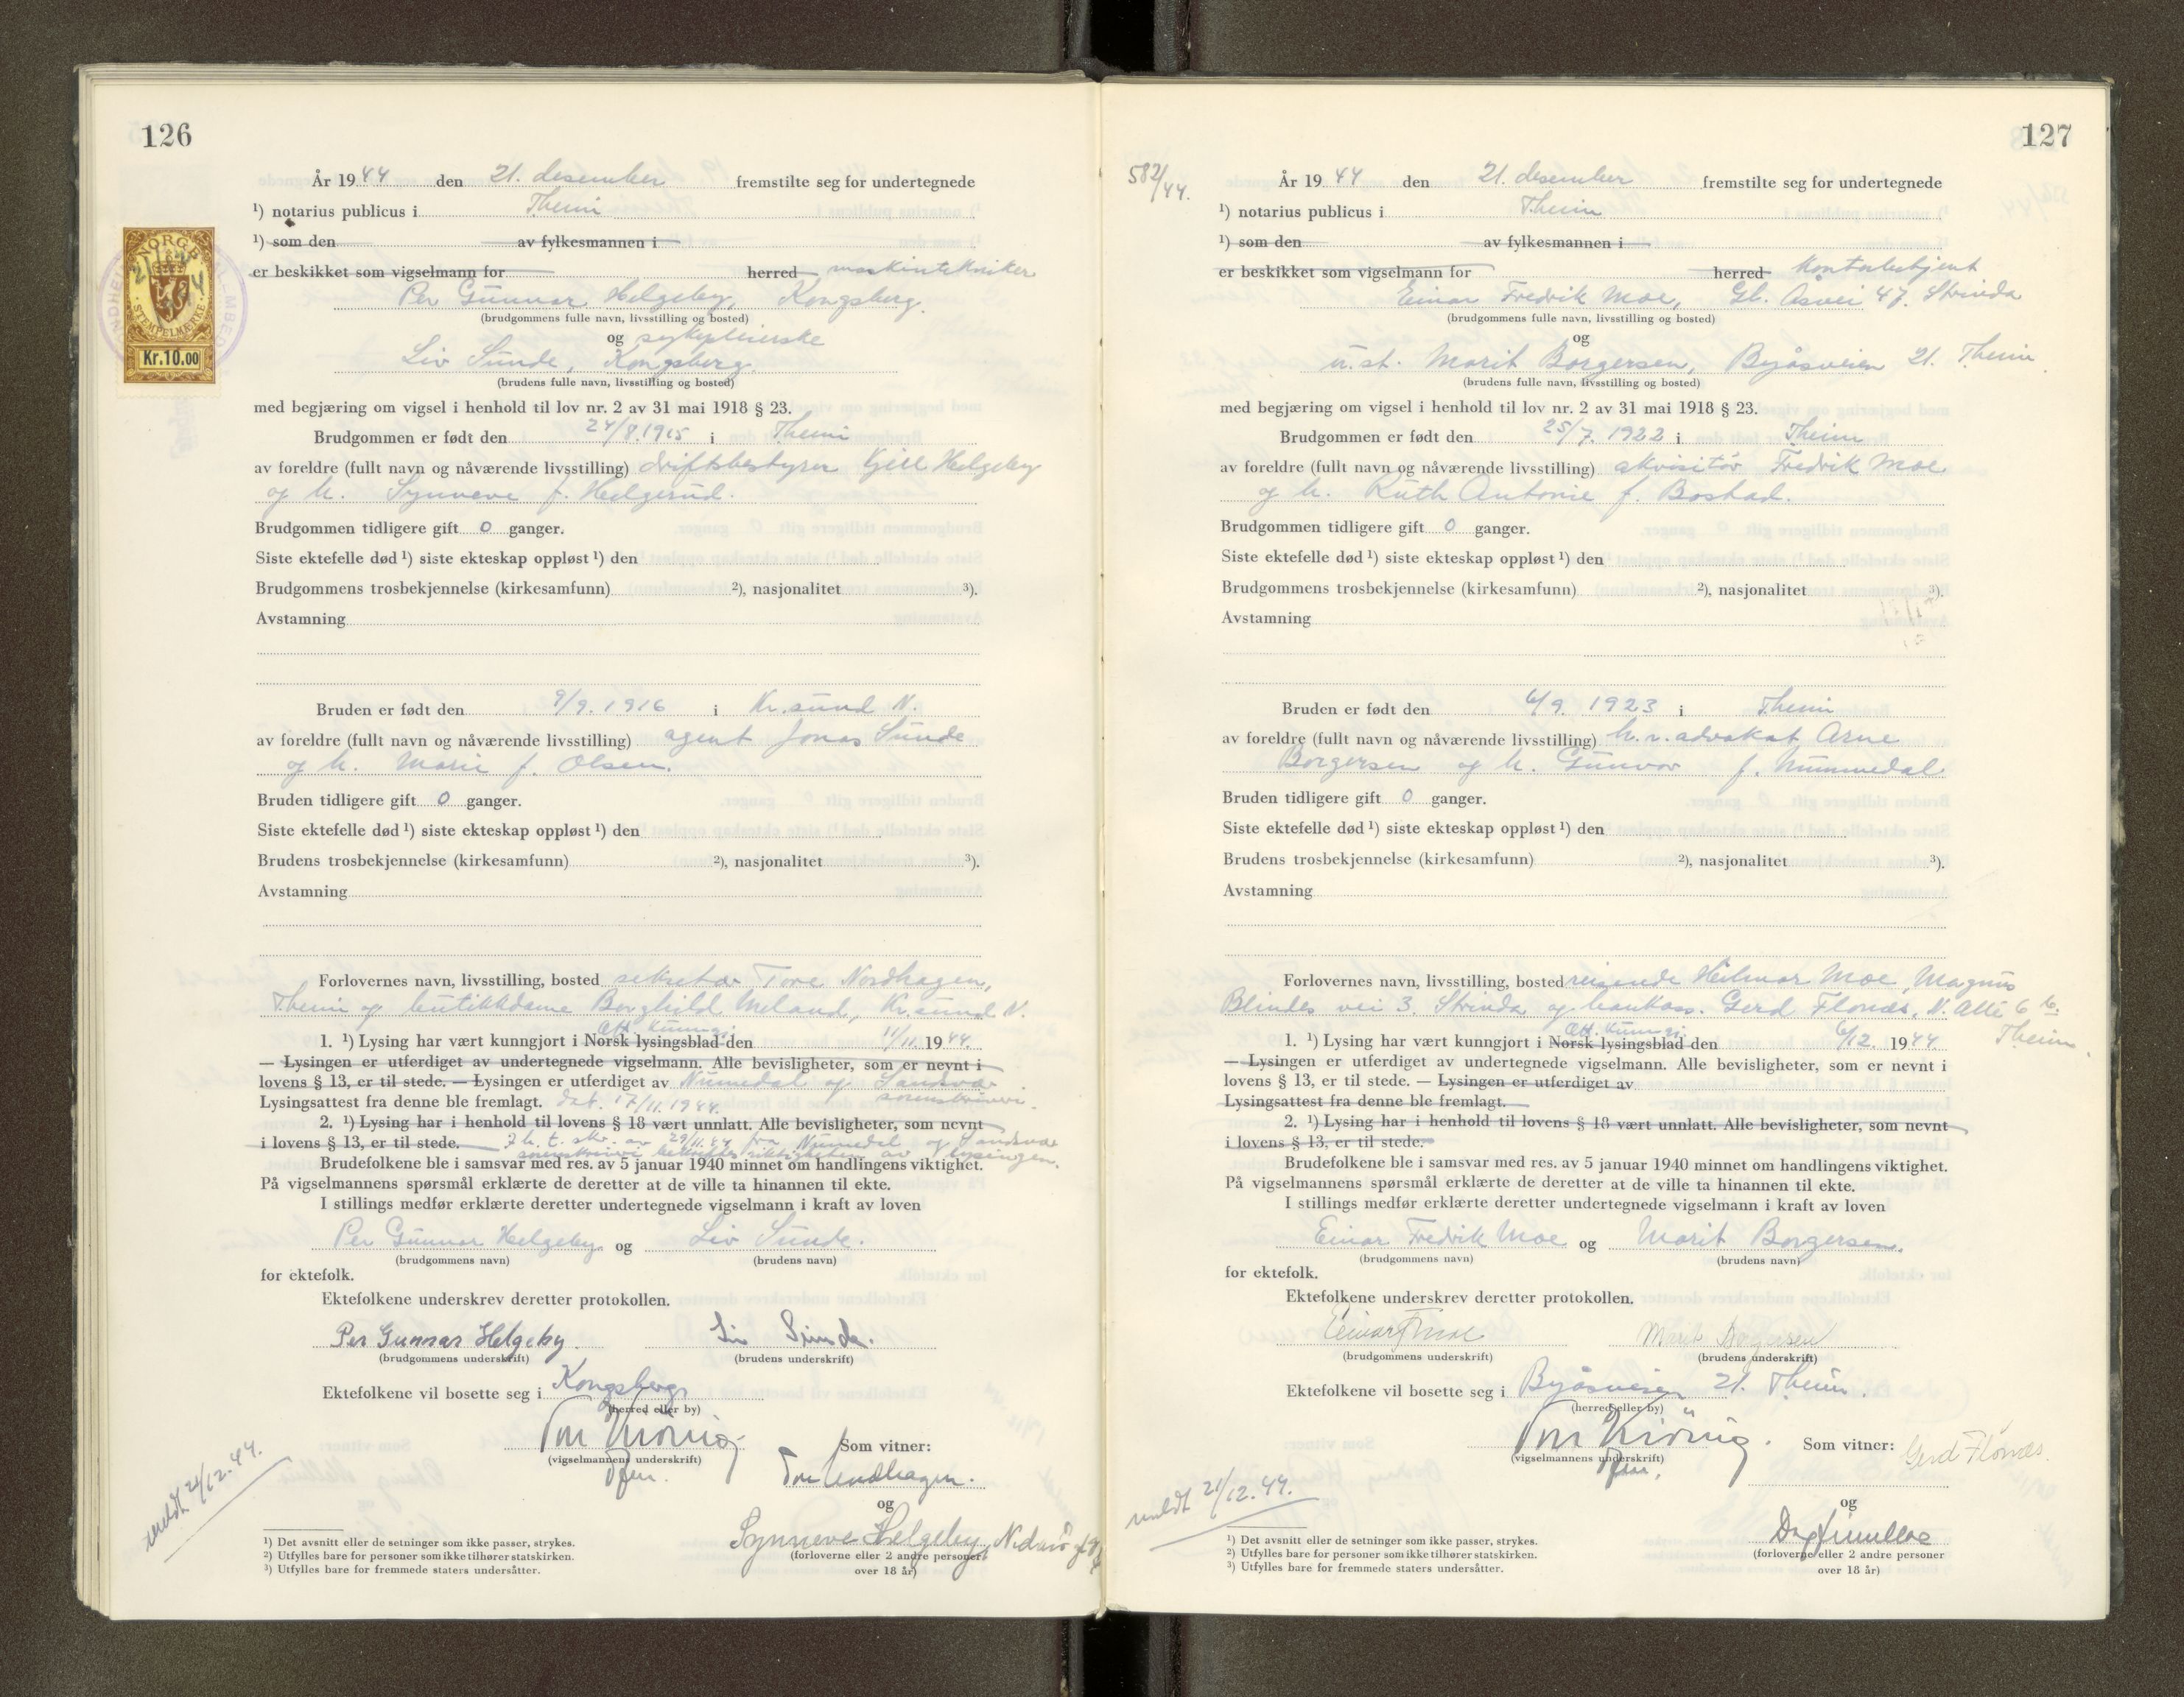 126
År 1944 den 21. desember fremstilte seg for undertegnede
¹) notarius publicus i Theim
¹) som den av fylkesmannen i
er beskikket som vigselmann for herred maskintekniker
Per Gunnar Helgeby, Kongsberg.
(brudgommens fulle navn, livsstilling og bosted)
og sykepleierske
Liv Sunde, Kongsberg.
(brudens fulle navn, livsstilling og bosted)
NORGE
STEMPELMERKE
Kr.10.00
med begjæring om vigsel i henhold til lov nr. 2 av 31 mai 1918 § 23.
Brudgommen er født den 24/8.1915 i Theim
av foreldre (fullt navn og nåværende livsstilling) driftsbestyrer Kjell Helgeby
og h. Synneve f. Helgerud.
Brudgommen tidligere gift 0 ganger.
Siste ektefelle død ¹) siste ekteskap oppløst ¹) den
Brudgommens trosbekjennelse (kirkesamfunn) ²), nasjonalitet ³).
Avstamning
Bruden er født den 9/9.1916 i Kr.sund N.
av foreldre (fullt navn og nåværende livsstilling) agent Jonas Sunde
og h. Marie f. Olsen.
Bruden tidligere gift 0 ganger.
Siste ektefelle død ¹) siste ekteskap oppløst ¹) den
Brudens trosbekjennelse (kirkesamfunn) ²), nasjonalitet ³).
Avstamning
Forlovernes navn, livsstilling, bosted sekretær Tore Nordhagen,
Theim og butikkdame Borghild Meland, Kr.sund N.
Off. kunngj.
1. ¹) Lysing har vært kunngjort i Norsk lysingsblad den 11/11. 1944.
— Lysingen er utferdiget av undertegnede vigselmann. Alle bevisligheter, som er nevnt i
lovens § 13, er til stede. — Lysingen er utferdiget av Numedal og Sandsvær
sorenskriveri.
Lysingsattest fra denne ble fremlagt. dat. 17/11.1944.
2. ¹) Lysing har i henhold til lovens § 18 vært unnlatt. Alle bevisligheter, som nevnt
i lovens § 13, er til stede. I h. t. skr. av 29/11.44 fra Numedal og Sandsvær
sorenskriveri bekreftes riktigheten av lysingen.
Brudefolkene ble i samsvar med res. av 5 januar 1940 minnet om handlingens viktighet.
På vigselmannens spørsmål erklærte de deretter at de ville ta hinannen til ekte.
I stillings medfør erklærte deretter undertegnede vigselmann i kraft av loven
Per Gunnar Helgeby og Liv Sunde.
(brudgommens navn) (brudens navn)
for ektefolk.
Ektefolkene underskrev deretter protokollen.
Per Gunnar Helgeby. Liv Sunde.
(brudgommens underskrift) (brudens underskrift)
Ektefolkene vil bosette seg i Kongsberg
(herred eller by)
Som vitner:
(vigselmannens underskrift)
Tore Nordhagen.
og
Synneve Helgeby,
(forloverne eller 2 andre personer
over 18 år)
meldt 21/12.44.
¹) Det avsnitt eller de setninger som ikke passer, strykes.
²) Utfylles bare for personer som ikke tilhører statskirken.
³) Utfylles bare for fremmede staters undersåtter.
127
582/44.
År 1944 den 21. desember fremstilte seg for undertegnede
¹) notarius publicus i Theim
¹) som den av fylkesmannen i
er beskikket som vigselmann for herred kontorbetjent
Einar Fredrik Moe, Gl. Åsvei 47. Strinda
(brudgommens fulle navn, livsstilling og bosted)
og
u.st. Marit Borgersen, Byåsveien 21. Theim.
(brudens fulle navn, livsstilling og bosted)
med begjæring om vigsel i henhold til lov nr. 2 av 31 mai 1918 § 23.
Brudgommen er født den 25/7.1922 i Theim
av foreldre (fullt navn og nåværende livsstilling) akvisitør Fredrik Moe
og h. Ruth Antonie f. Bostad.
Brudgommen tidligere gift 0 ganger.
Siste ektefelle død ¹) siste ekteskap oppløst ¹) den
Brudgommens trosbekjennelse (kirkesamfunn) ²), nasjonalitet ³).
Avstamning
Bruden er født den 6/9. 1923 i Theim
av foreldre (fullt navn og nåværende livsstilling) h.r.advokat Arne
Borgersen og h. Gunvor f. Nummedal.
Bruden tidligere gift 0 ganger.
Siste ektefelle død ¹) siste ekteskap oppløst ¹) den
Brudens trosbekjennelse (kirkesamfunn) ²), nasjonalitet ³).
Avstamning
Forlovernes navn, livsstilling, bosted reisende Heilmar Moe, Magnus
Blindes vei 3. Strinda og bankass. Gerd Flønæs, N. Allé 6 b.
Theim.
Off. kunngj.
1. ¹) Lysing har vært kunngjort i Norsk lysingsblad den 6/12. 1944.
— Lysingen er utferdiget av undertegnede vigselmann. Alle bevisligheter, som er nevnt i
lovens § 13, er til stede. — Lysingen er utferdiget av
Lysingsattest fra denne ble fremlagt.
2. ¹) Lysing har i henhold til lovens § 18 vært unnlatt. Alle bevisligheter, som nevnt
i lovens § 13, er til stede.
Brudefolkene ble i samsvar med res. av 5 januar 1940 minnet om handlingens viktighet.
På vigselmannens spørsmål erklærte de deretter at de ville ta hinannen til ekte.
I stillings medfør erklærte deretter undertegnede vigselmann i kraft av loven
Einar Fredrik Moe og Marit Borgersen.
(brudgommens navn) (brudens navn)
for ektefolk.
Ektefolkene underskrev deretter protokollen.
Einar F Moe Marit Borgersen
(brudgommens underskrift) (brudens underskrift)
Ektefolkene vil bosette seg i Byåsveien 21. Theim.
(herred eller by)
Som vitner: Gerd Flønæs.
(vigselmannens underskrift)
og
(forloverne eller 2 andre personer
over 18 år)
meldt 21/12.44.
¹) Det avsnitt eller de setninger som ikke passer, strykes.
²) Utfylles bare for personer som ikke tilhører statskirken.
³) Utfylles bare for fremmede staters undersåtter.